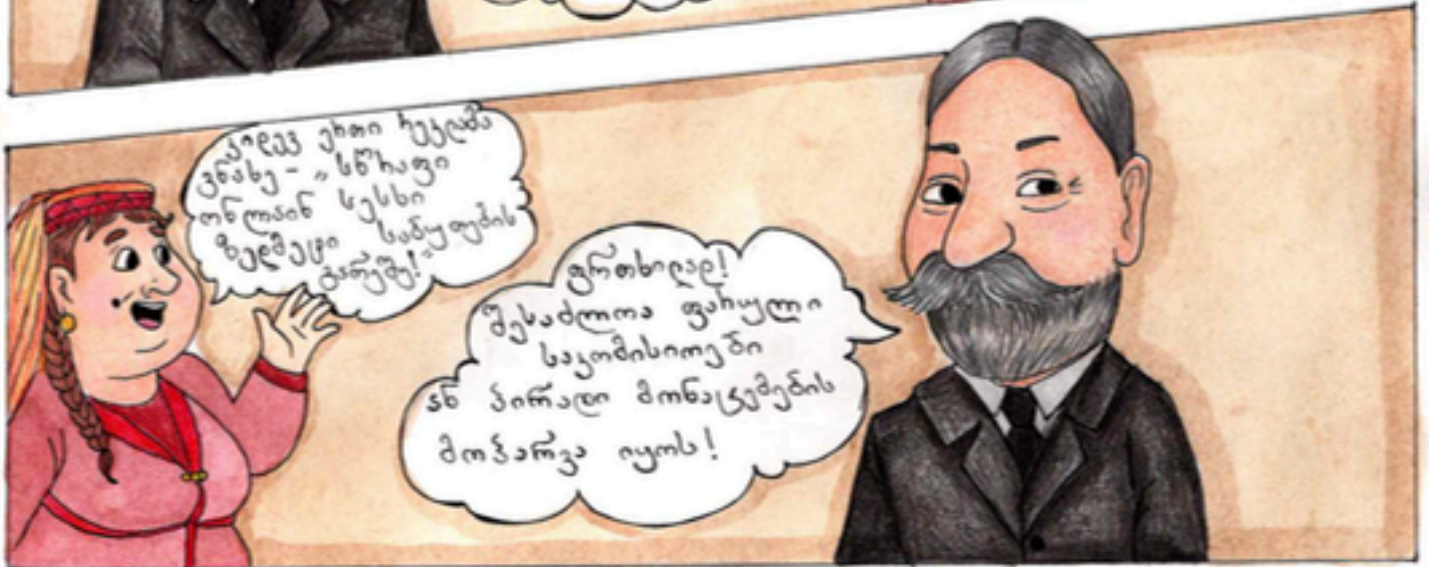 კიდევ ერთი რეკლამა
ვნახე - „სწრაფი
ონლაინ სესხი
ზედმეტი საბუთების
გარეშე!“
ფრთხილად!
შესაძლოა ფარული
საკომისიოები
ან პირადი მონაცემების
მოპარვა იყოს!